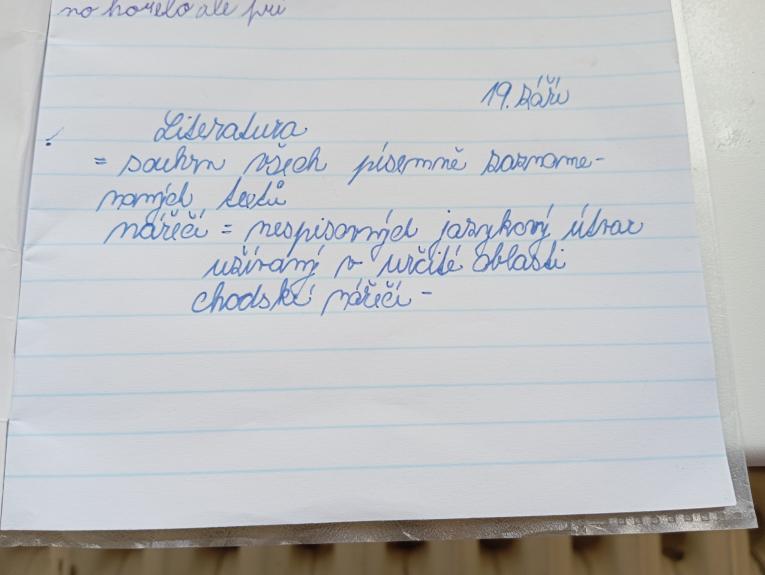 no hořelo ale při
19. září
Literatura
= souhrn všech písemně zazname-
naných textů
nářečí = nespisovných jazykový útvar
užívaný v určité oblasti
chodské nářečí -